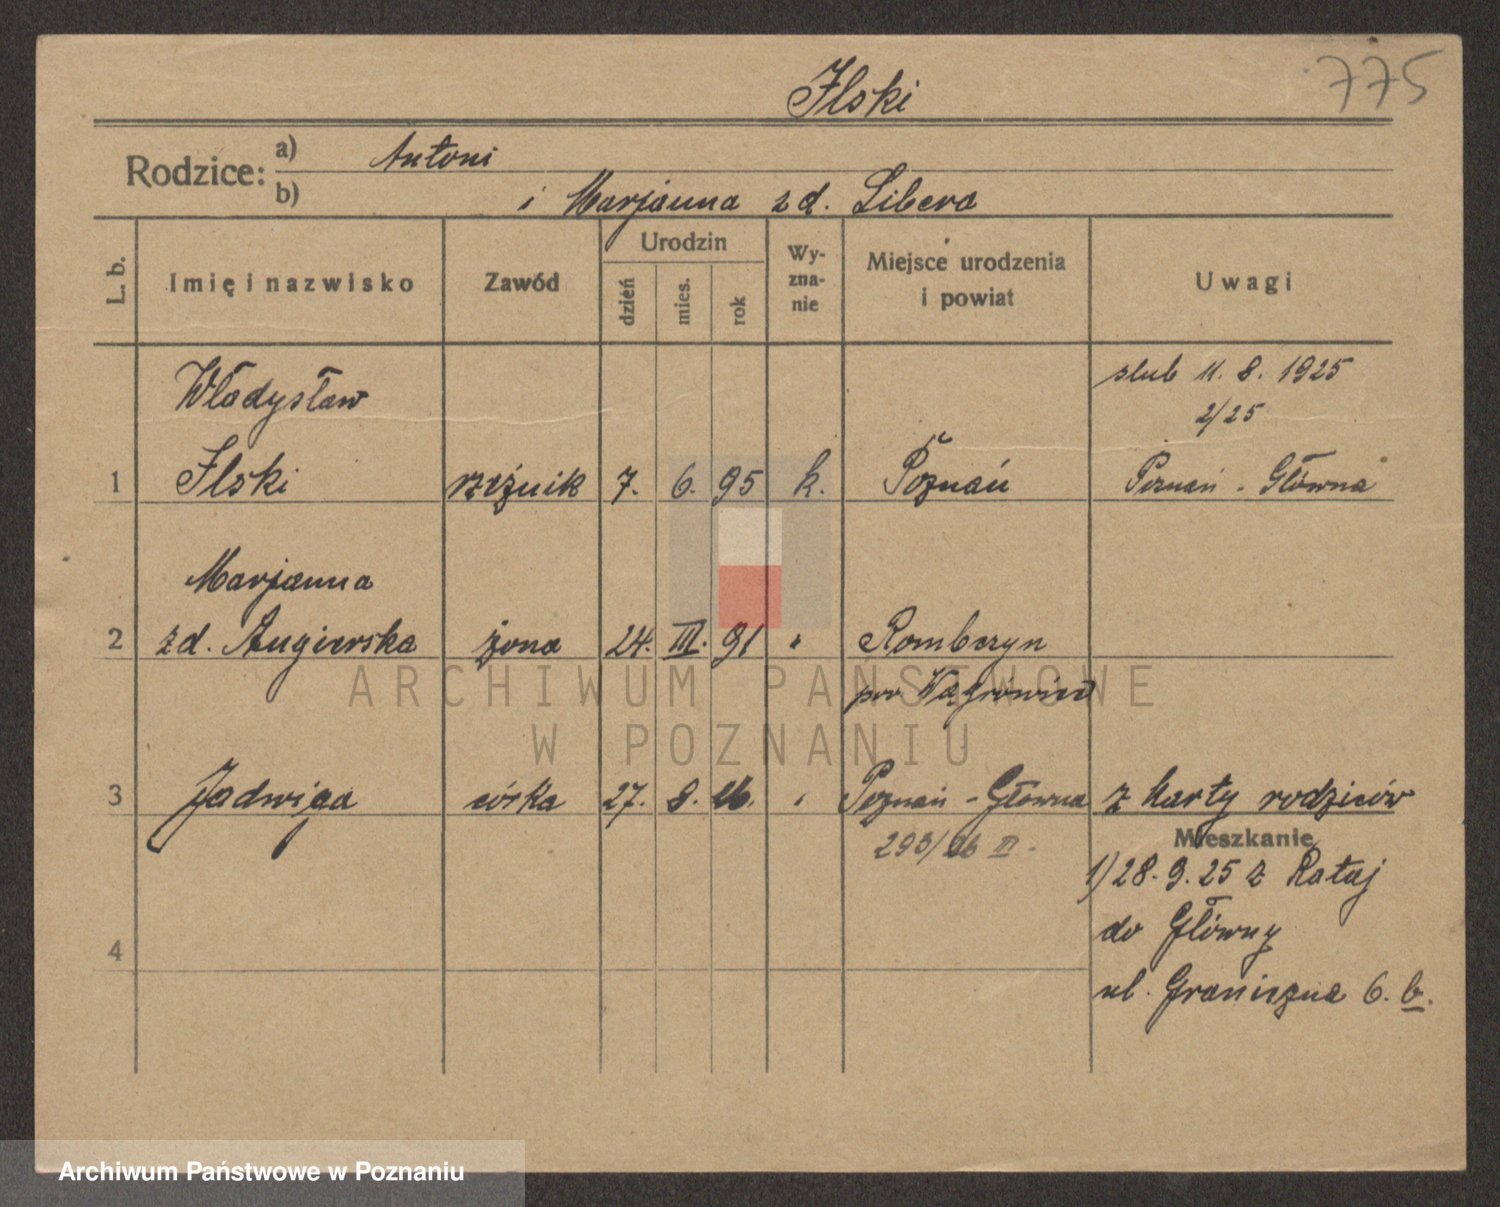 775
Ilski
Rodzice: a) Antoni
b) i Marjanna z d. Libera
L. b. Imię i nazwisko Zawód Urodzin dzień mies. rok Wyznanie Miejsce urodzenia i powiat Uwagi
Władysław slub 11. 8. 1925
2/25
1 Ilski rzeźnik 7. 6. 95 k. Poznań Poznań - Główna
Marjanna
2 z d. Augierska żona 24. III. 91 " Rombczyn
pow Wągrówiec
3 Jadwiga córka 27. 8. 26. " Poznań - Główna z karty rodziców
293/26 III. Mieszkanie
1) 28. 9. 25 z Rataj
do Główny
4
ul. Graniczna 6. b.
ARCHIWUM PAŃSTWOWE
W POZNANIU
Archiwum Państwowe w Poznaniu